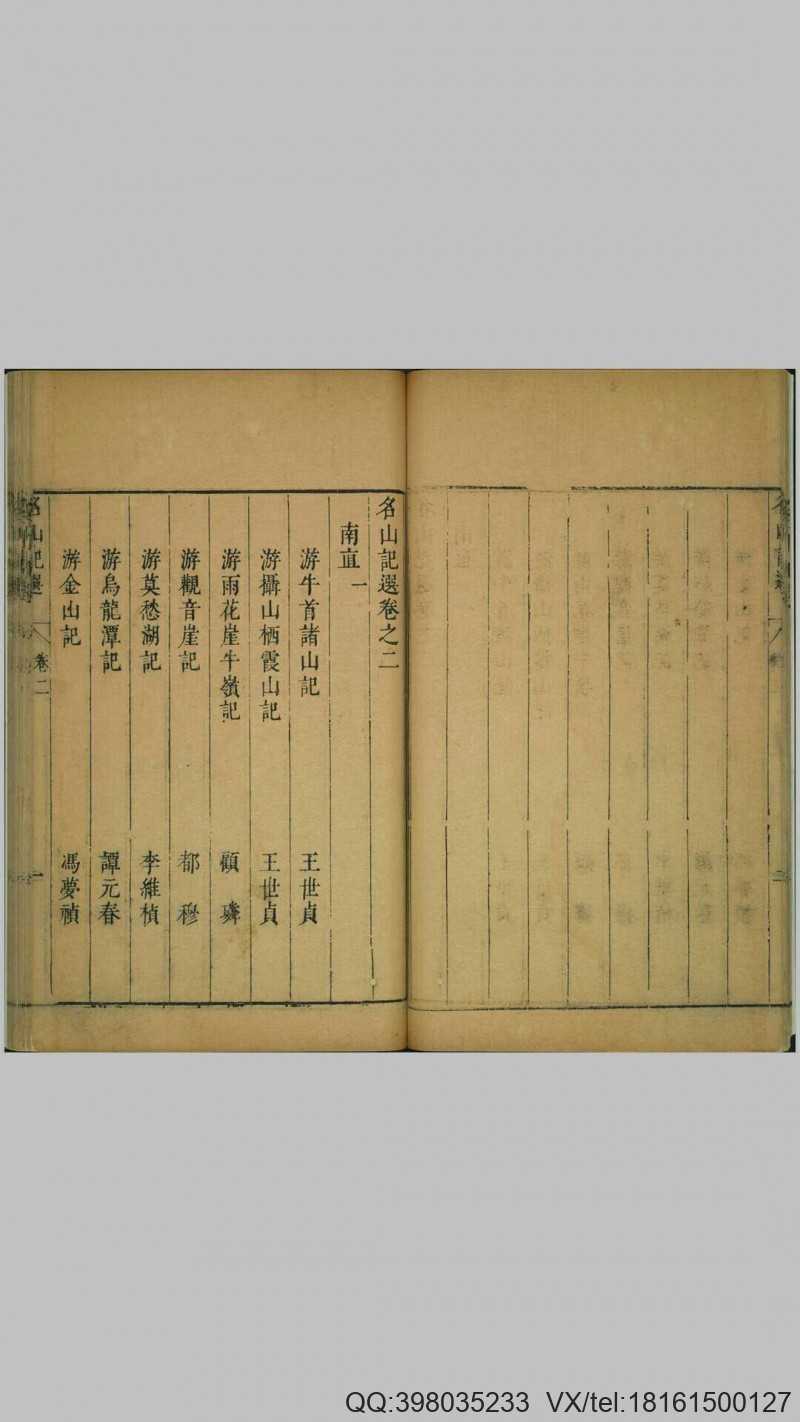 名山記選卷之二
南直一
游牛首諸山記 王世貞
游攝山栖霞山記 王世貞
游雨花崖牛嶺記 顧璘
游觀音崖記 都穆
游莫愁湖記 李維楨
游烏龍潭記 譚元春
游金山記 馮夢禎
名山記選 卷二 一
QQ:398035233 VX/tel:18161500127